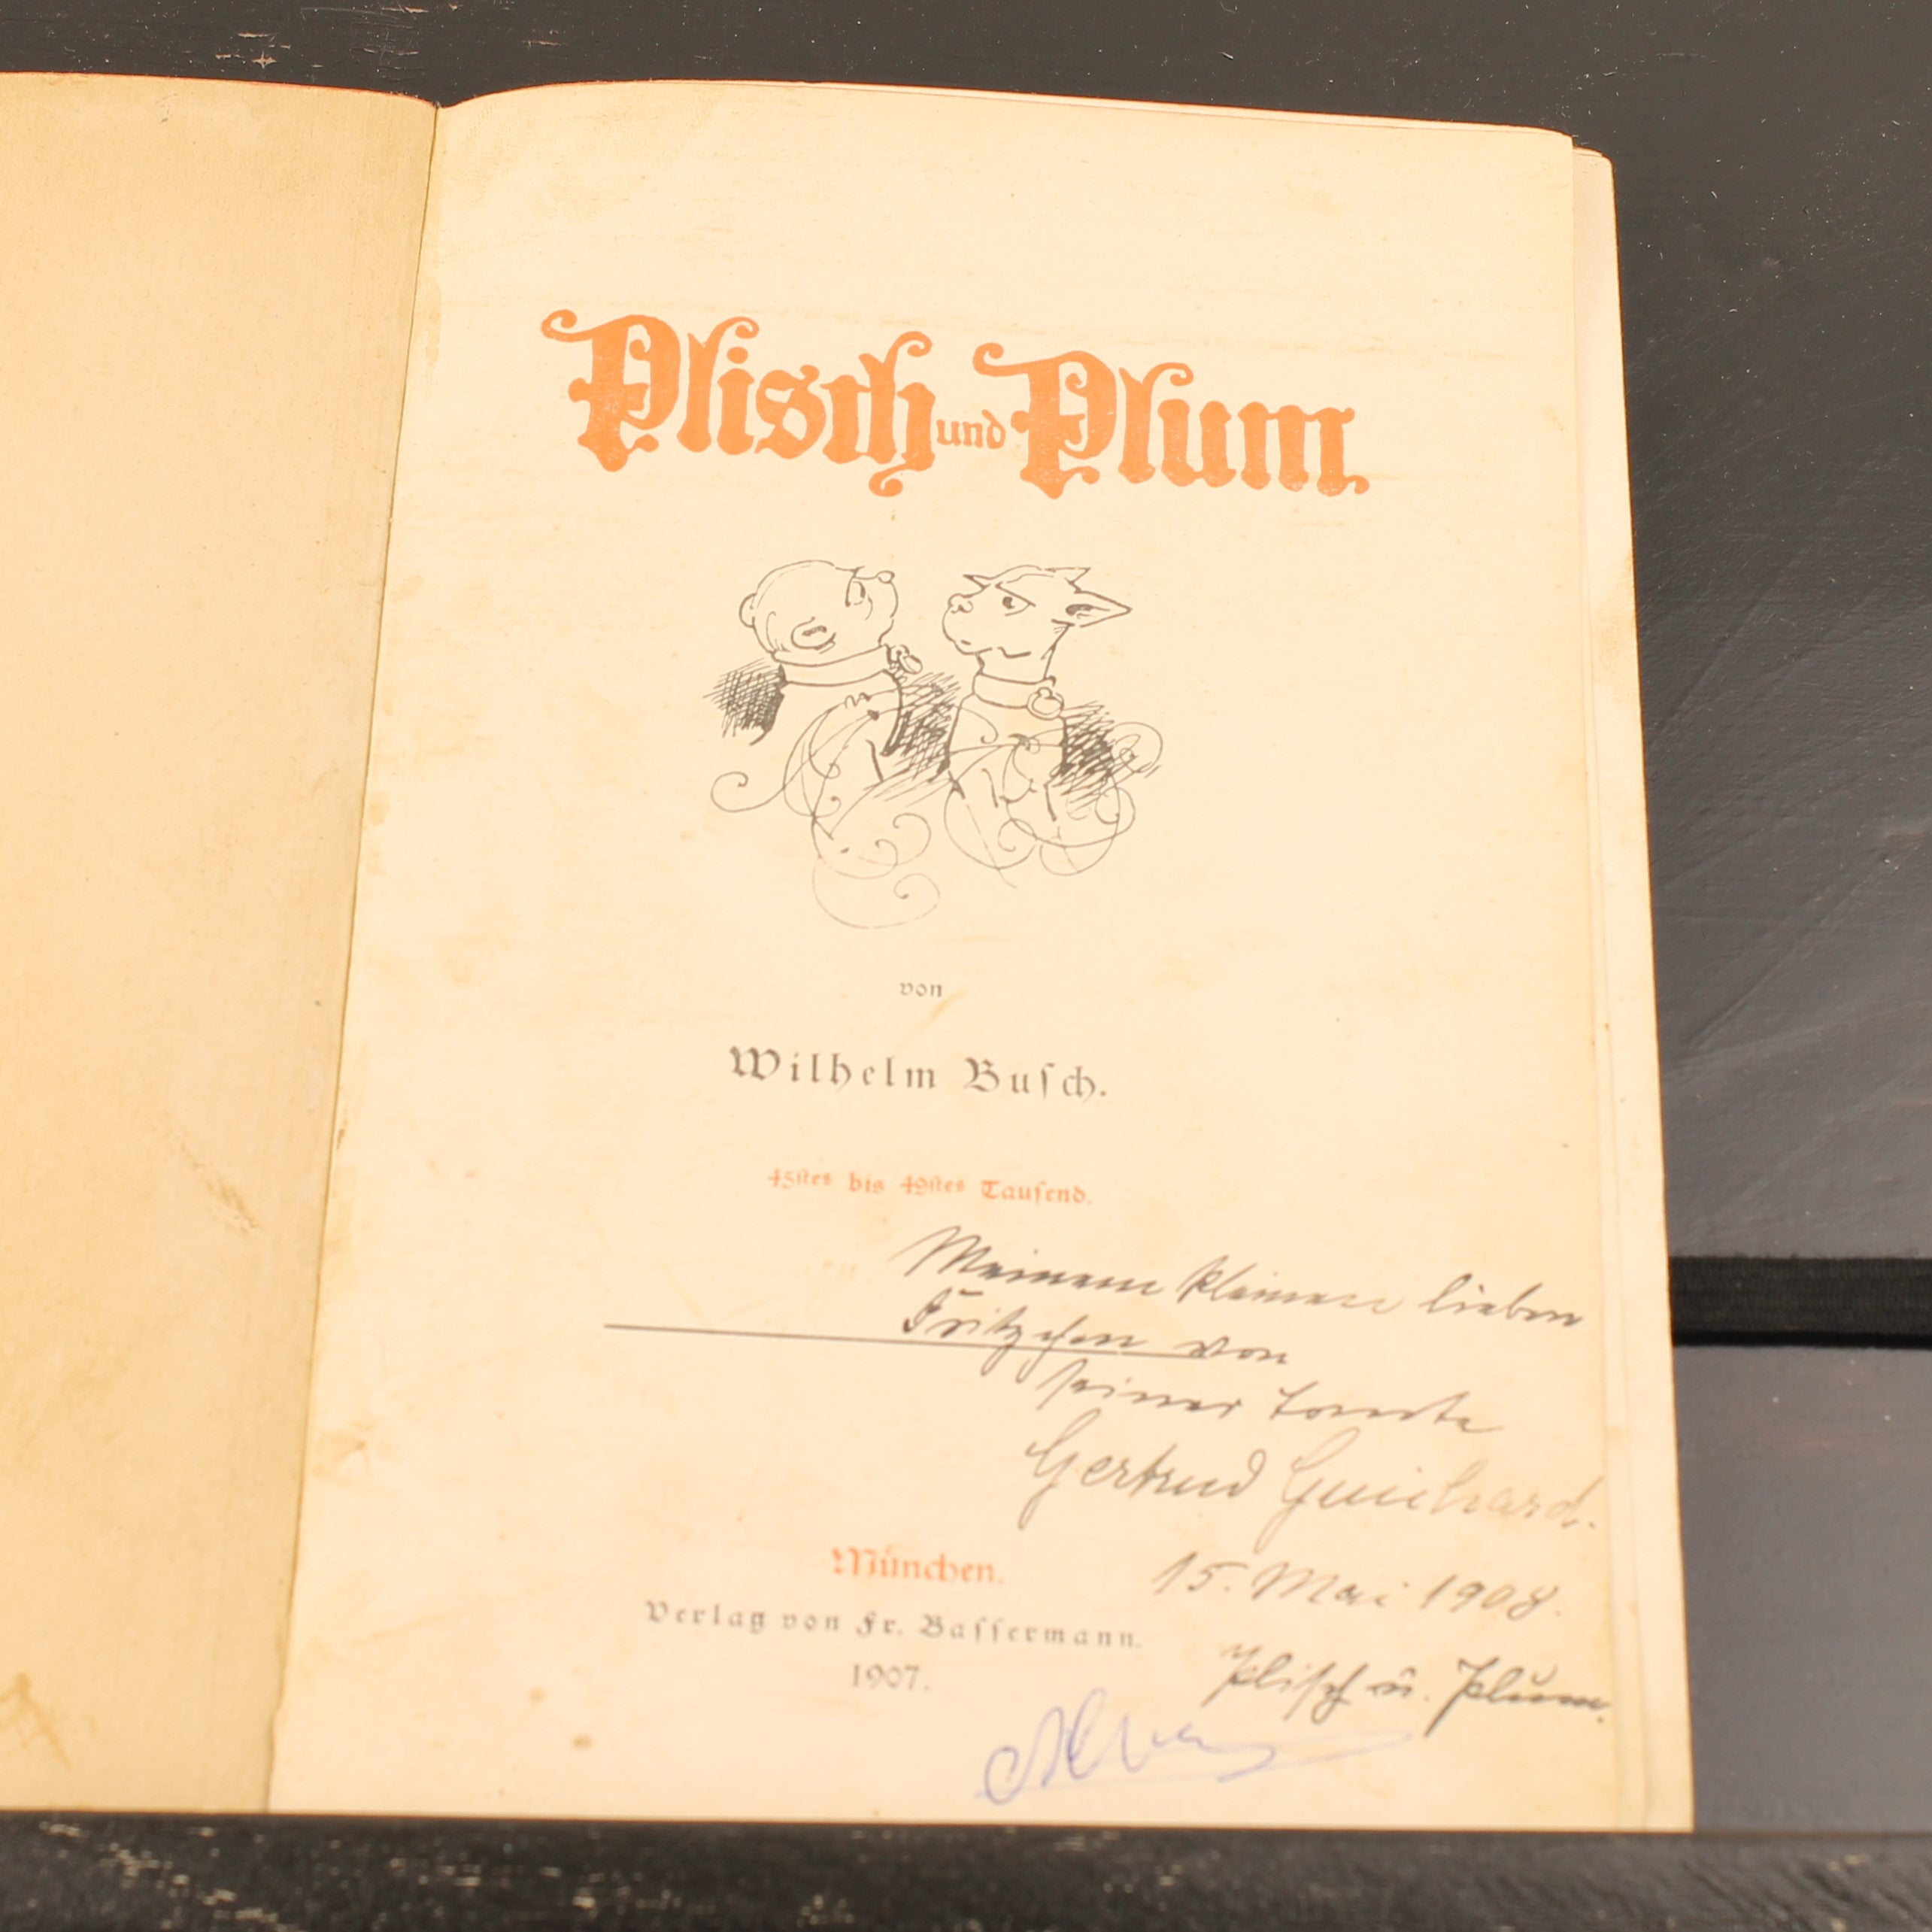 Plisch und Plum.
von
Wilhelm Busch.
45stes bis 49stes Tausend.
Meinem kleinen lieben
Fritzchen von
seiner Tante
Gertrud Guichard.
15. Mai 1908.
Plisch u. Plum.
München.
Verlag von Fr. Bassermann.
1907.